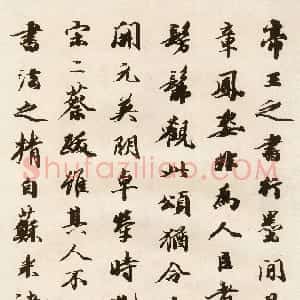 帝王之書行墨間
章鳳姿非為人臣者
髣髴觀此頌猶令
開元英明卓犖時
宋二蔡跋雖其人不
書法之精自蘇米
Shufaziliao.com